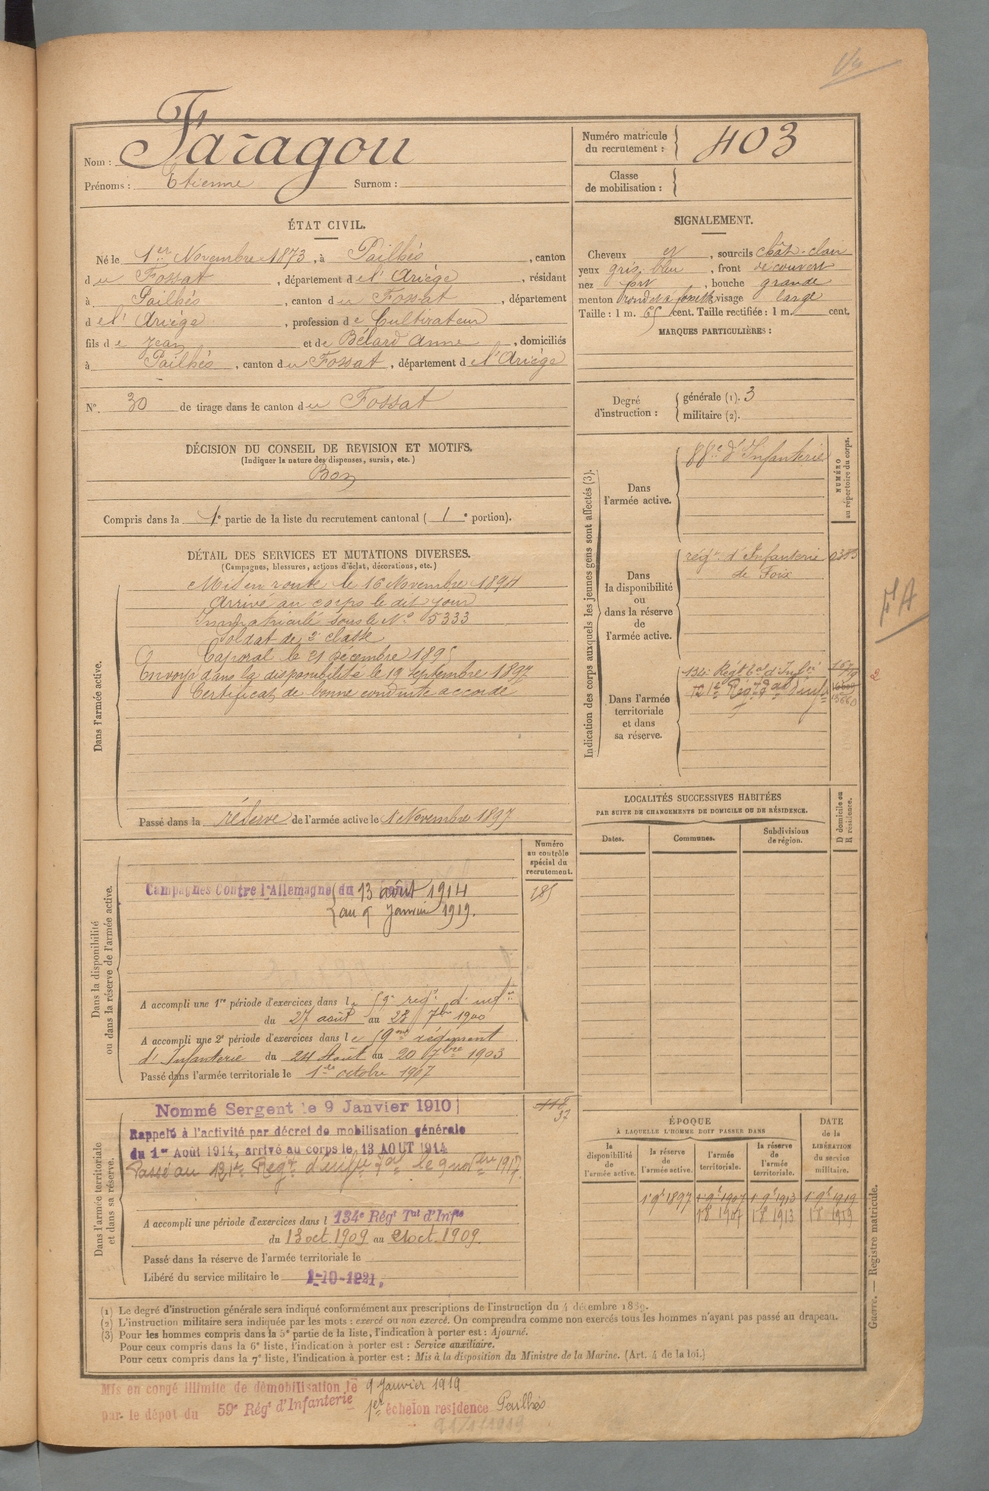 Nom : Faragou
Prénoms : Etienne Surnom :
Numéro matricule du recrutement : 403
Classe de mobilisation :
ÉTAT CIVIL.
Né le 1er Novembre 1873, à Pailhés, canton
du Fossat, département de l'Ariége, résidant
à Pailhés, canton du Fossat, département
de l' Ariége, profession de Cultivateur
fils de Jean et de Bélard Anne, domiciliés
à Pailhés, canton du Fossat, département de l'Ariége
N° 30 de tirage dans le canton du Fossat
DÉCISION DU CONSEIL DE REVISION ET MOTIFS.
(Indiquer la nature des dispenses, sursis, etc.)
Bon
Compris dans la 1e partie de la liste du recrutement cantonal ( 1e portion).
DÉTAIL DES SERVICES ET MUTATIONS DIVERSES.
(Campagnes, blessures, actions d'éclat, décorations, etc.)
Dans l'armée active.
Mis en route le 16 Novembre 1894
Arrivé au corps le dit jour
Immatriculé sous le N° 5333
Soldat de 2e classe
Caporal le 21 décembre 1895
Envoyé dans la disponibilité le 19 septembre 1897
Certificat de bonne conduite accordé
Passé dans la réserve de l'armée active le 1 Novembre 1897
Numéro au contrôle spécial du recrutement.
Dans la disponibilité ou dans la réserve de l'armée active.
Campagnes Contre l'Allemagne du 13 août 1914
au 9 Janvier 1919.
A accompli une 1re période d'exercices dans le 59e régt d'infie
du 27 août au 23 7bre 1900
A accompli une 2e période d'exercices dans le 59me régiment
d'Infanterie du 24 Août au 20 7bre 1903
Passé dans l'armée territoriale le 1er octobre 1907
Dans l'armée territoriale et dans sa réserve.
Nommé Sergent le 9 Janvier 1910
Rappelé à l'activité par décret de mobilisation générale
du 1er Août 1914, arrivé au corps le 13 AOUT 1914
A accompli une période d'exercices dans l 134e Régt Tal d'Infie
du 13 oct. 1909 au 21 oct. 1909.
Passé dans la réserve de l'armée territoriale le
Libéré du service militaire le 1-10-1921.
SIGNALEMENT.
Cheveux et, sourcils chât-clair
yeux gris bleu, front découvert
nez fort, bouche grande
menton rond et à fossette, visage large
Taille : 1 m. 65 cent. Taille rectifiée : 1 m. cent.
MARQUES PARTICULIÈRES :
Degré d'instruction : générale (1). 3
militaire (2).
Indication des corps auxquels les jeunes gens sont affectés (3).
NUMÉRO au répertoire du corps.
Dans l'armée active. d'Infanterie
Dans la disponibilité ou dans la réserve de l'armée active.
régt d'Infanterie
de Foix
Dans l'armée territoriale et dans sa réserve.
134e Régt tal d'Infie
LOCALITÉS SUCCESSIVES HABITÉES
PAR SUITE DE CHANGEMENTS DE DOMICILE OU DE RÉSIDENCE.
Dates. Communes. Subdivisions de région. D domicile ou R résidence.
ÉPOQUE À LAQUELLE L'HOMME DOIT PASSER DANS
la disponibilité de l'armée active. la réserve de l'armée active. l'armée territoriale. la réserve de l'armée territoriale.
DATE de la LIBÉRATION du service militaire.
1 9e 1897 1 9e 1907 1 9e 1913 1 9e 1919
1 8 1907 1 8 1913 1 8 1919
(1) Le degré d'instruction générale sera indiqué conformément aux prescriptions de l'instruction du 4 décembre 1889.
(2) L'instruction militaire sera indiquée par les mots : exercé ou non exercé. On comprendra comme non exercés tous les hommes n'ayant pas passé au drapeau.
(3) Pour les hommes compris dans la 5e partie de la liste, l'indication à porter est : Ajourné.
Pour ceux compris dans la 6e liste, l'indication à porter est : Service auxiliaire.
Pour ceux compris dans la 7e liste, l'indication à porter est : Mis à la disposition du Ministre de la Marine. (Art. 4 de la loi.)
Guerre. — Registre matricule.
Mis en congé illimité de démobilisation le 9 Janvier 1919
par le dépôt du 59e Régt d'Infanterie 1er échelon residence Pailhés